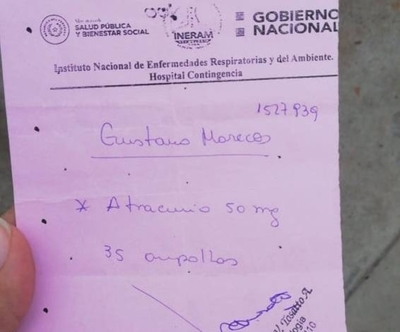 SALUD PÚBLICA
Y BIENESTAR SOCIAL
INERAM
GOBIERNO
NACIONAL
Instituto Nacional de Enfermedades Respiratorias y del Ambiente.
Hospital Contingencia
1527939
Gustavo Mareco
* Atracurio 50 mg
35 ampollas